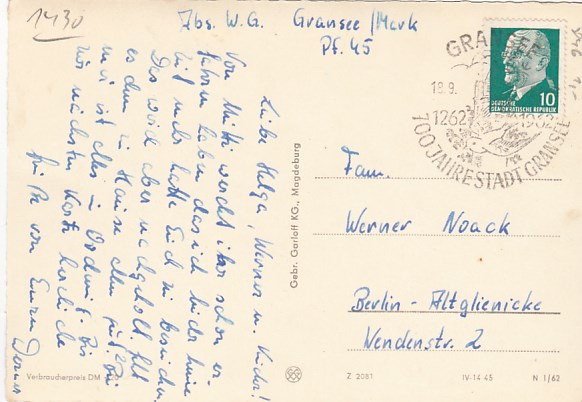 1430
Abs. W.G. Gransee /Mark
Pf. 45
Liebe Helga, Werner u. Kinder!
Von Mutti werdet ihr schon er-
fahren haben das ich leider keine
Zeit mehr hatte Euch zu besuchen.
Das wird aber nachgeholt.
es denn zu Hause allen gut? Bei
mir ist alles in Ordnung. Bis
zur nächsten Karte herzliche
Grüße von Eurem
Verbraucherpreis DM
Gebr. Garloff KG., Magdeburg
GRANSEE
18.9.
1262 1962
700 JAHRE STADT GRANSEE
DEUTSCHE
DEMOKRATISCHE REPUBLIK
10
Fam.
Werner Noack
Berlin-Altglienicke
Wendenstr. 2
Z 2081
IV-14-45
N 1/62